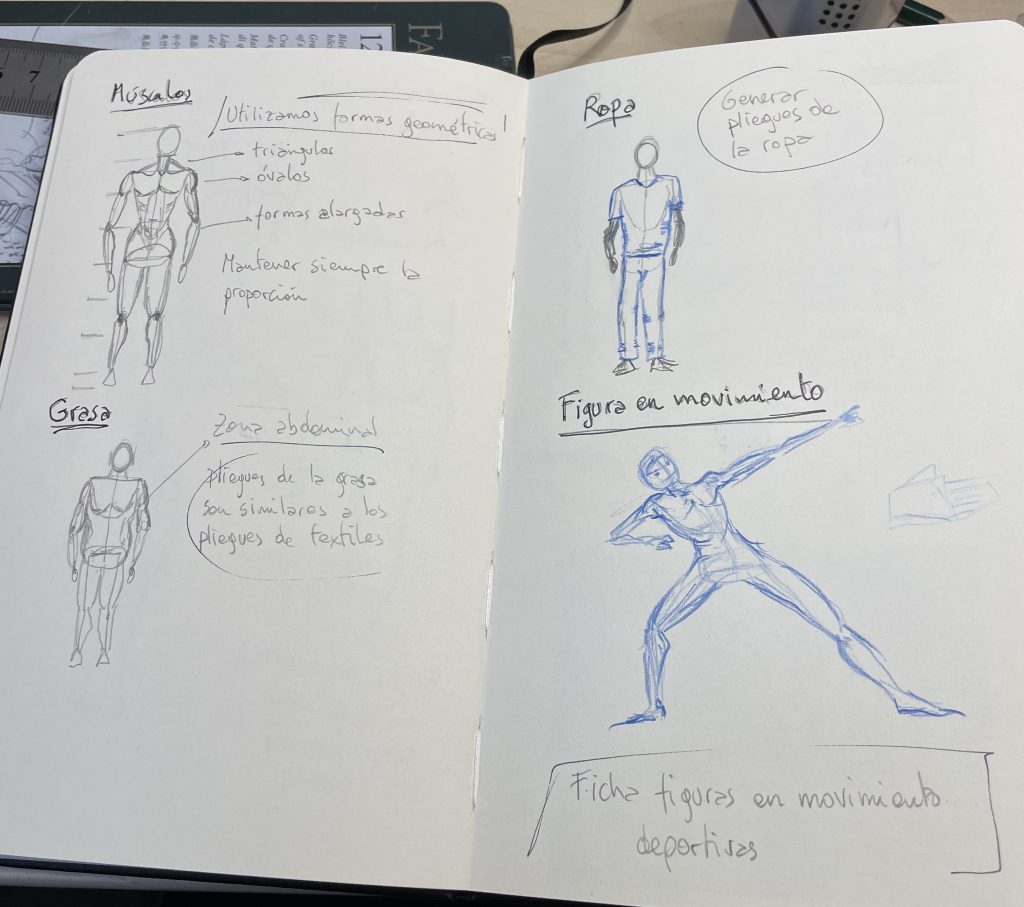 Músculos
Utilizamos formas geométricas!
triángulos
óvalos
formas alargadas
Mantener siempre la
proporción
Grasa
Zona abdominal
pliegues de la grasa
son similares a los
pliegues de textiles
Ropa
Generar
pliegues de
la ropa
Figura en movimiento
Ficha figuras en movimiento
deportivas
12
FA
7